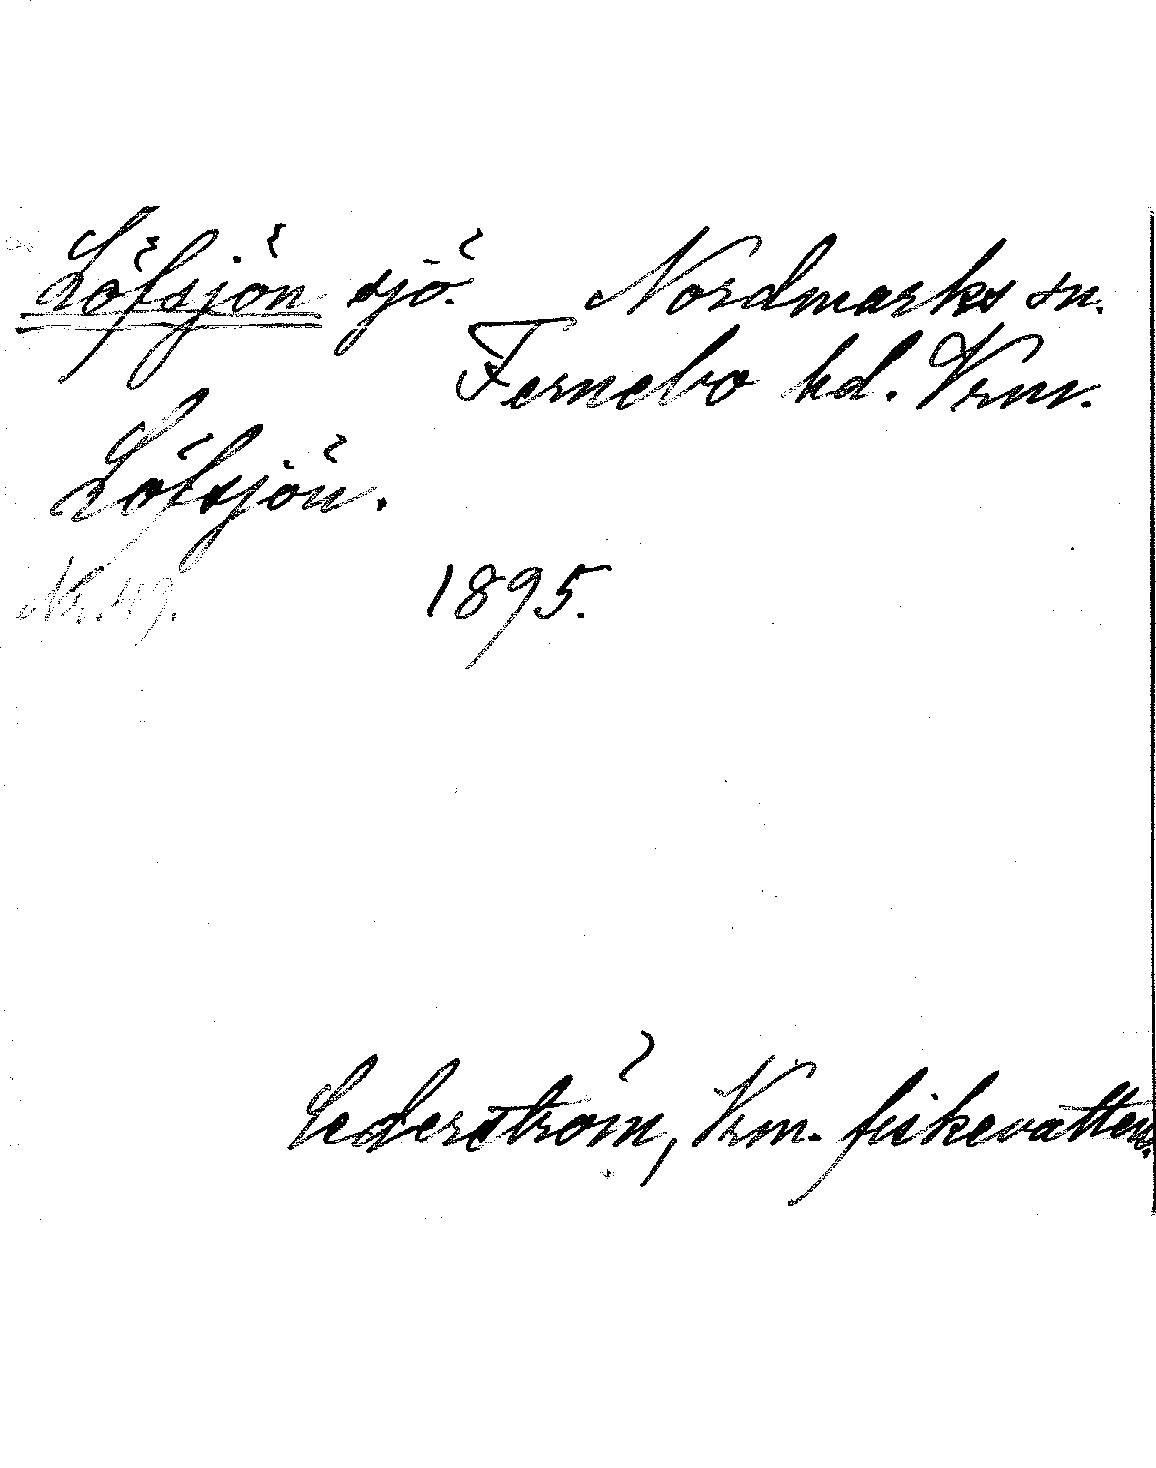 Löfsjön sjö. Nordmarks sn.
Fernebo hd. Vrm.
Löfsjön.
Nr. 49. 1895.
Cederström, Vrm. fiskevatten.